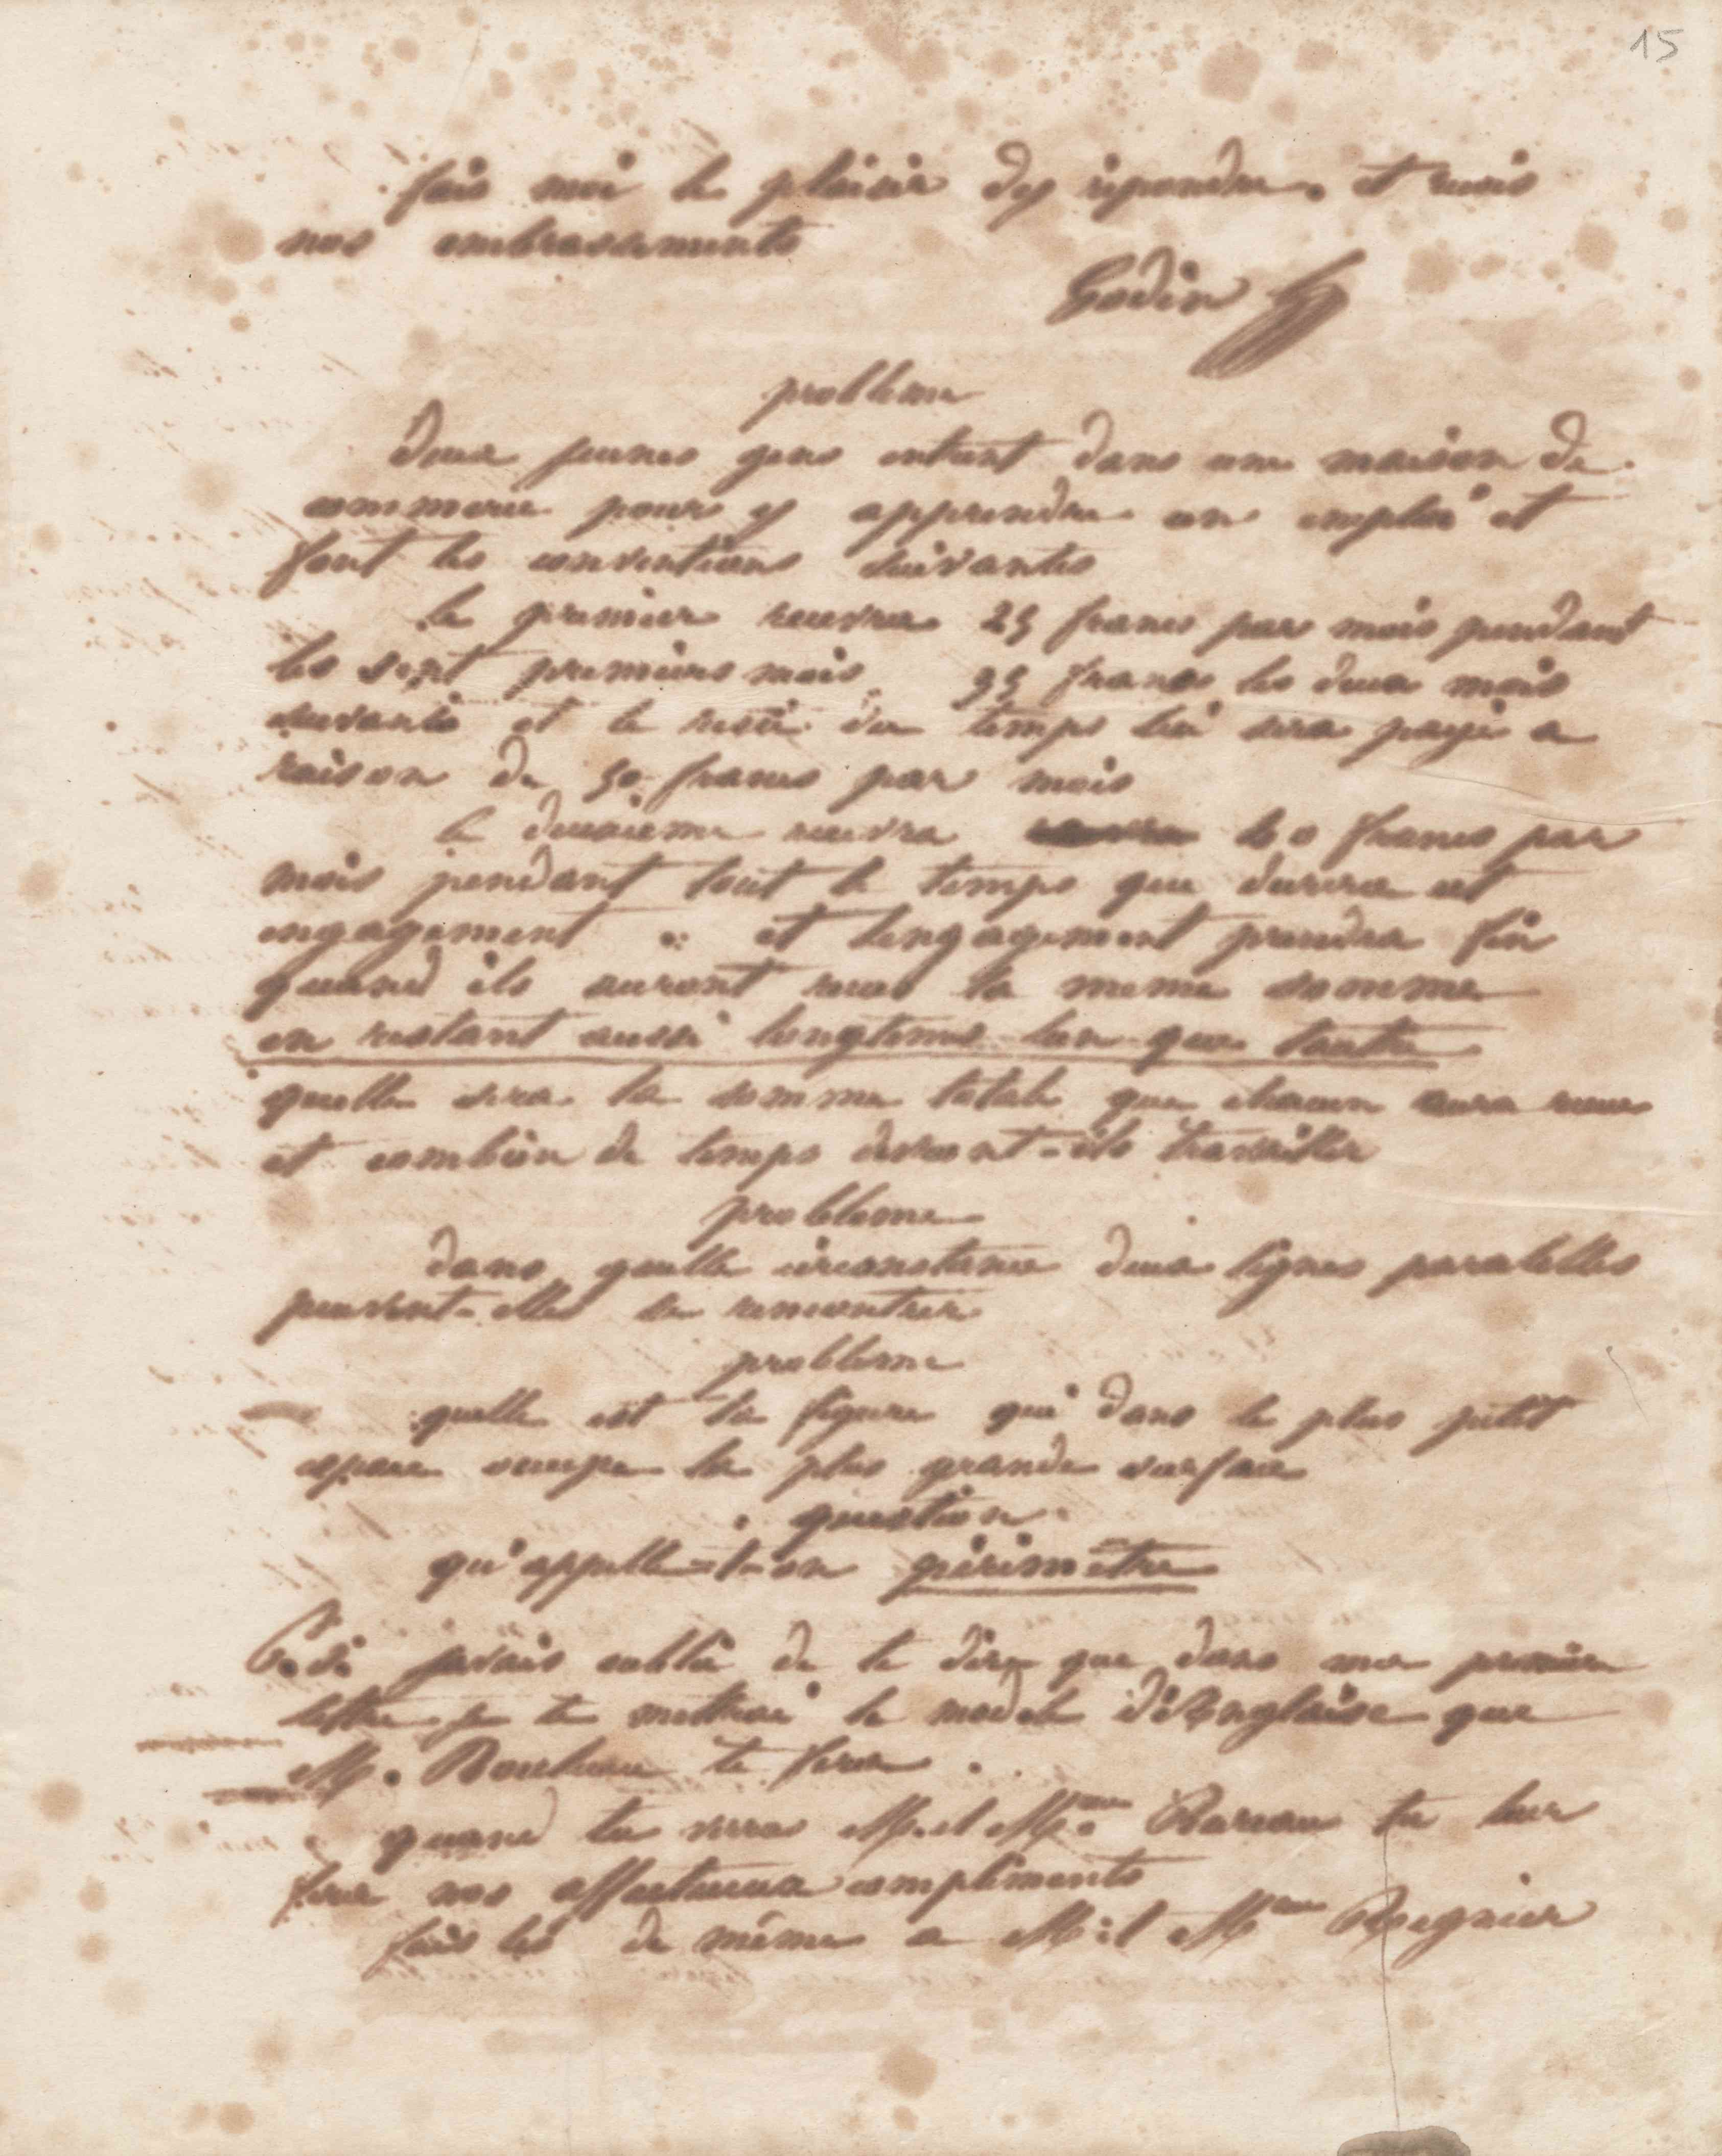 15
fais moi le plaisir dy repondre. et recois
nos embrassements
Godin
probleme
Deux jeunes gens entrent dans une maison de
commerce pour y apprendre un emploi et
font les conventions suivantes
le premier recevra 25 francs par mois pendant
les sept premiers mois 35 francs les deux mois
suivants et le reste du temps lui sera payé a
raison de 50 francs par mois
le deuxieme recevra 40 francs par
mois pendant tout le temps que durera cet
engagement et lengagement prendra fin
quand ils auront recu la meme somme
en restant aussi longtems lun que lautre
quelle sera la somme totale que chacun aura recue
et combien de temps devront-ils travailler
probleme
dans quelle circonstance deux lignes paralelles
peuvent-elles se rencontrer
probleme
quelle est la figure qui dans le plus petit
espace occupe la plus grande surface
question
qu'appelle-t-on périmètre
P.S. javais oublié de te dire que dans ma premiere
lettre je te mettrai le modele d'Anglaise que
M. te fera.
quand tu verra M. et Mme tu leur
fera nos affectueux compliments
fais les de même a M. et Mme Regnier